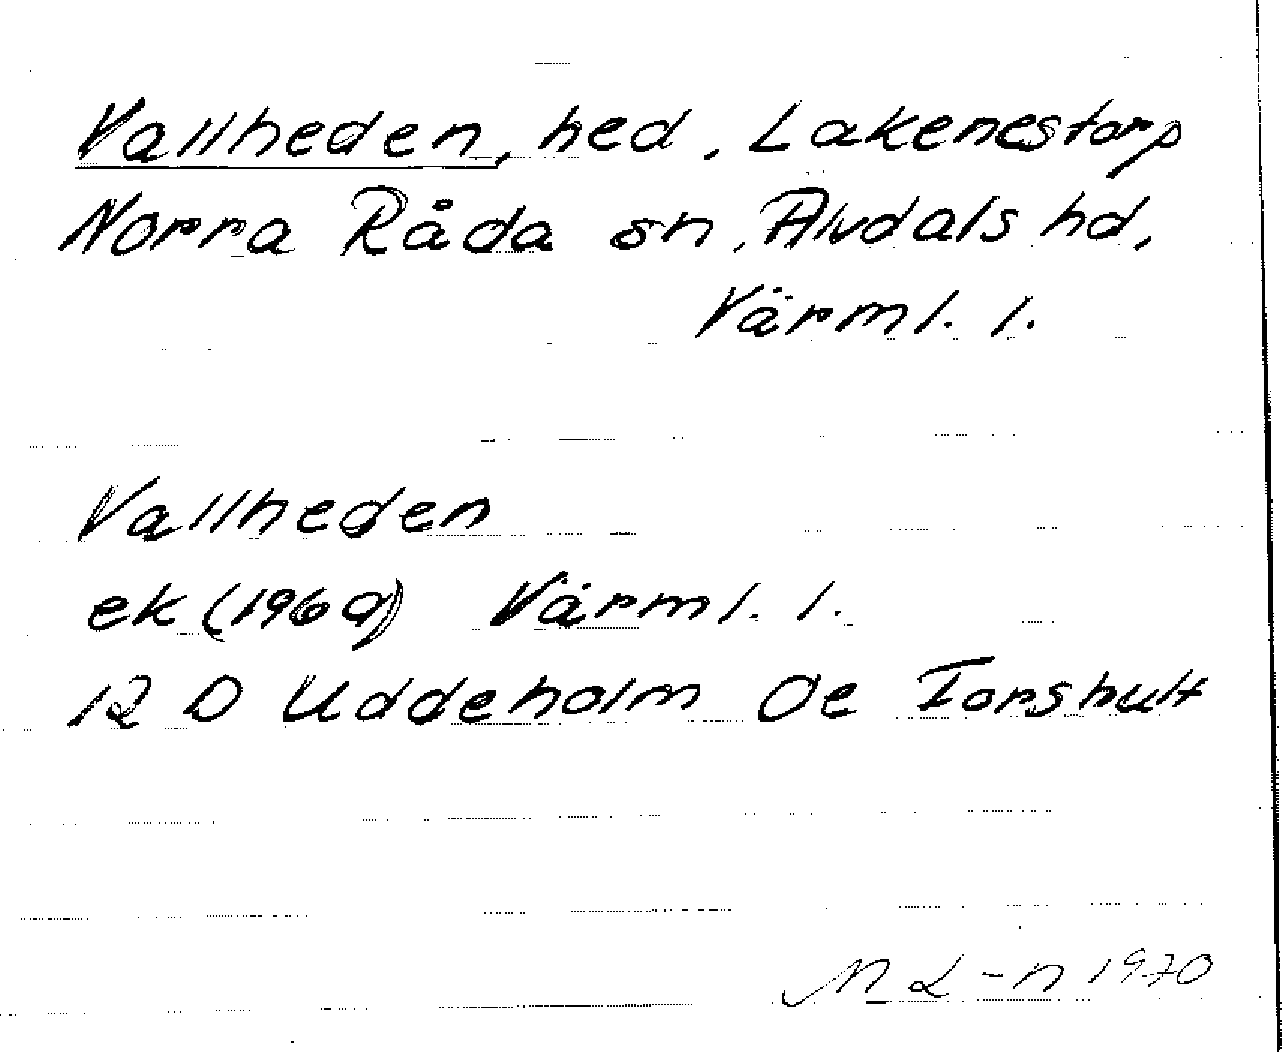 Vallheden, hed, Lakenestorp
Norra Råda sn, Älvdals hd,
Värml. l.
Vallheden
ek (1969) Värml. l.
12 D Uddeholm Oe Torshult
M L-n 1970